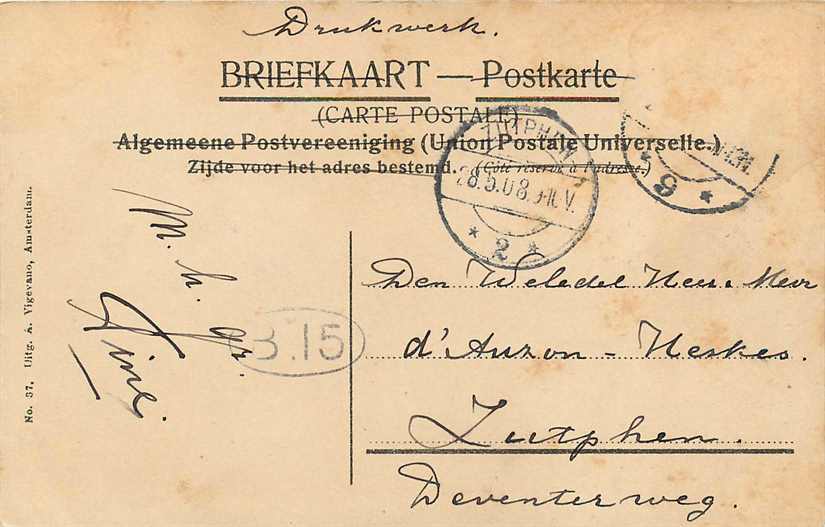 Drukwerk.
BRIEFKAART — Postkarte
(CARTE POSTALE)
Algemeene Postvereeniging (Union Postale Universelle.)
Zijde voor het adres bestemd. (Côté réservé à l'adresse.)
ZUTPHEN
28.5.08.9-11.V.
* 2 *
* 9 *
M. h. gr.
Tine.
B.15
Den Weledel Heer & Mevr
d'Auzon - Heskes.
Zutphen.
Deventerweg.
No. 37. Uitg. A. Vigevano, Amsterdam.